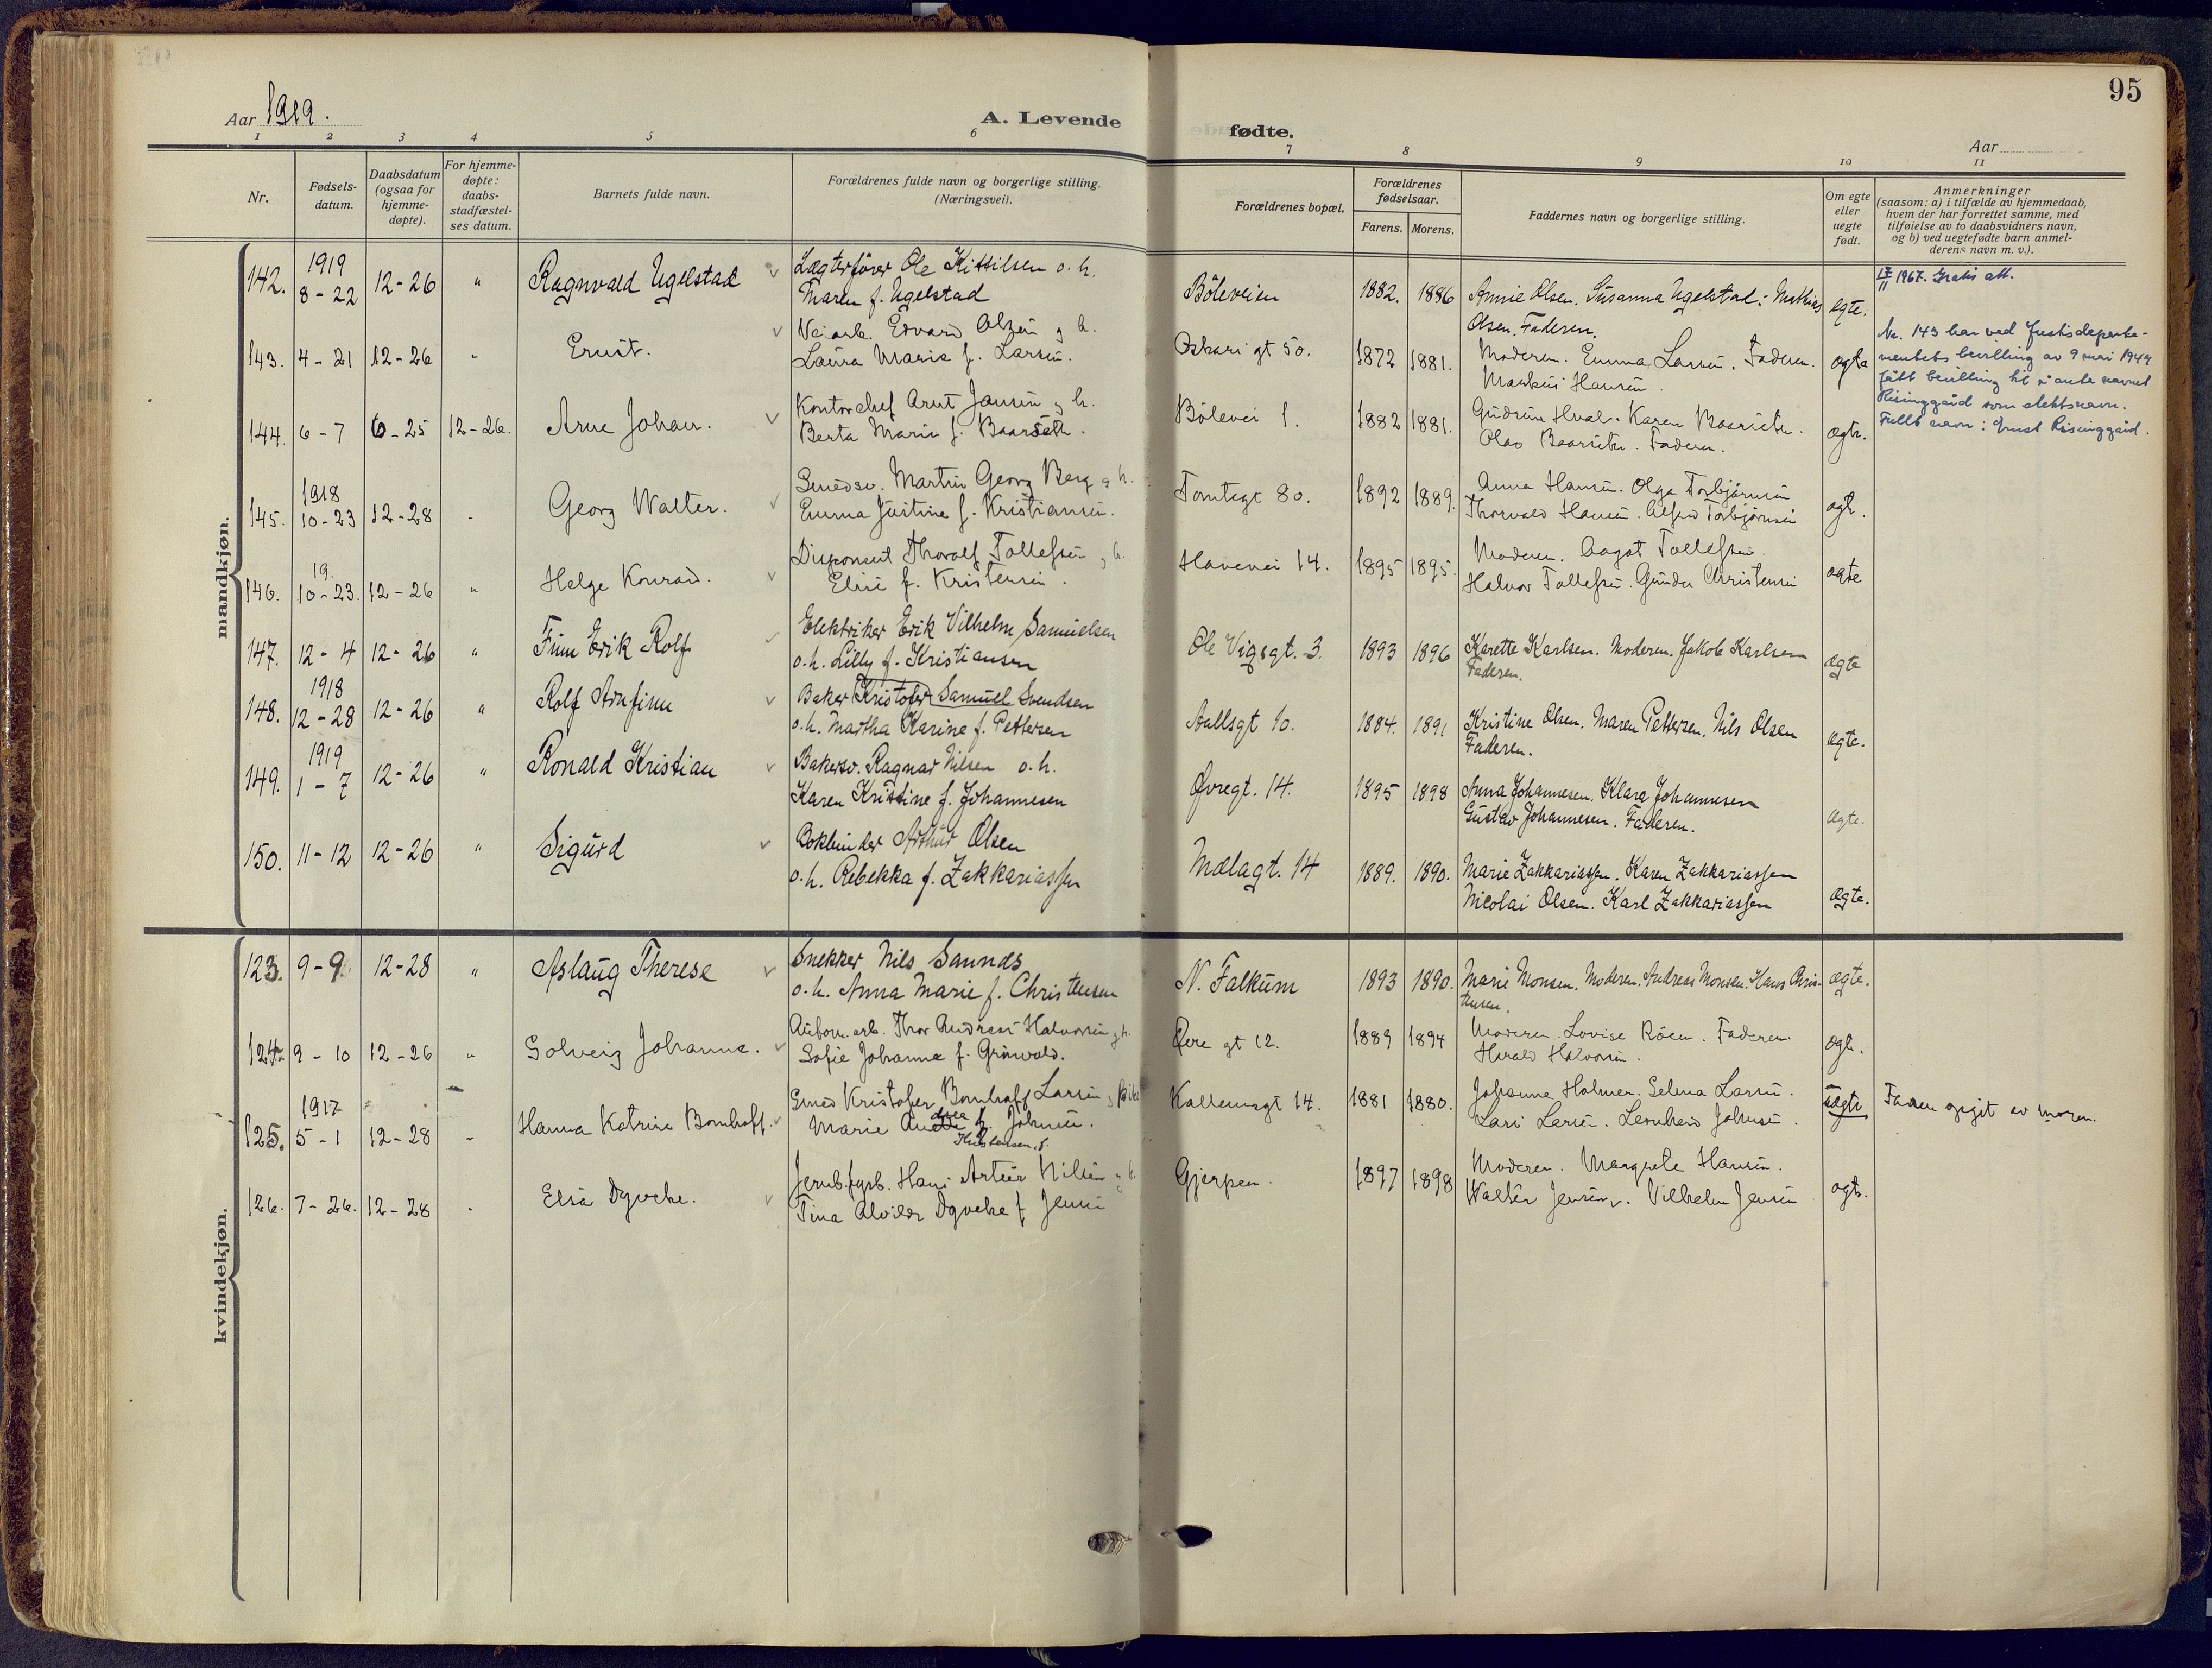 95
Aar 1919.
A. Levende fødte.
Aar
1 2 3 4 5 6 7 8 9 10 11
Nr.
Fødsels-
datum.
Daabsdatum
(ogsaa for
hjemme-
døpte).
For hjemme-
døpte:
daabs-
stadfæstel-
ses datum.
Barnets fulde navn.
Forældrenes fulde navn og borgerlige stilling.
(Næringsvei).
Forældrenes bopæl.
Forældrenes
fødselsaar.
Farens. Morens.
Faddernes navn og borgerlige stilling.
Om egte
eller
uegte
født.
Anmerkninger
(saasom: a) i tilfælde av hjemmedaab,
hvem der har forrettet samme, med
tilføielse av to daabsvidners navn,
og b) ved uegtefødte barn anmel-
derens navn m. v.).
mandkjøn.
142. 1919 8-22 12-26 " Ragnvald Ugelstad
Lægterfører Ole Kittilsen o. h.
Maren f. Ugelstad
Böleveien 1882. 1886
Annie Olsen. Susanna Ugelstad. Mathias
Olsen. Faderen.
egte.
17/11 1967. Gratis att.
143. 4-21 12-26 " Ernst.
Veiarb. Edvard Olsen og h.
Laura Marie f. Larsen.
Oskars gt 50. 1872 1881.
Moderen. Emma Larsen. Faderen.
Markus Hansen.
egte
Nr. 143 har ved Justisdeparte-
mentets bevilling av 9 mai 1944
fått bevilling til å anta navnet
Risinggård som slektsnavn.
Fullt navn: Ernst Risinggård.
144. 6-7 6-25 12-26. Arne Johan.
Kontorchef Arnt Jansen og h.
Berta Marie f. Baarseth.
Bölevei 1. 1882 1881.
Gudrun Hval. Karen Baarseth.
Olav Baarseth. Faderen.
egte.
145. 1918 10-23 12-28 " Georg Walter.
Smedsv. Martin Georg Berg og h.
Emma Justine f. Kristiansen.
Tomtegt 80. 1892 1889.
Anna Hansen. Olga Torbjörnsen
Thorvald Hansen. Alfred Torbjörnsen
egte.
146. 19. 10-23. 12-26 " Helge Konrad.
Disponent Thoralf Tollefsen og h.
Elise f. Kristensen.
Havevei 14. 1895 1895.
Moderen. Aagot Tollefsen.
Halvor Tollefsen. Gunder Christensen
egte
147. 12-4 12-26 " Finn Erik Rolf
Elektriker Erik Vilhelm Samuelsen
o. h. Lilly f. Kristiansen
Ole Vigsgt. 3. 1893 1896
Karette Karlsen. Moderen. Jakob Karlsen
Faderen.
egte
148. 1918 12-28 12-26 " Rolf Arnfinn
Baker Kristofer Samuel Svendsen
o. h. Martha Karine f. Pettersen
Aallsgt 10. 1884. 1891
Kristine Olsen. Maren Pettersen. Nils Olsen
Faderen.
egte.
149. 1919 1-7 12-26 " Ronald Kristian
Bakersv. Ragnar Nilsen o. h.
Karen Kristine f. Johannesen
Øvregt. 14. 1895 1898
Anna Johannesen. Klara Johannesen
Gustav Johannesen. Faderen.
egte.
150. 11-12 12-26 " Sigurd
Bokbinder Arthur Olsen
o. h. Rebekka f. Zakkariassen
Mælagt. 14 1889. 1890.
Marie Zakkariassen. Karen Zakkariassen
Nicolai Olsen. Karl Zakkariassen
egte.
kvindekjøn.
123. 9-9 12-28 " Aslaug Therese
Snekker Nils Saunds
o. h. Anna Marie f. Christensen
N. Falkum 1893 1890.
Marie Monsen. Moderen. Andreas Monsen. Hans Chris-
tensen.
egte.
124. 9-10 12-26 " Solveig Johanne.
arb. Thor Andreas Halvorsen og h.
Sofie Johanne f. Grönvold.
Øvre gt 12. 1889 1894
Moderen. Lovise Röen. Faderen.
Harald Halvorsen.
egte.
125. 1917 5-1 12-28 " Hanna Katrine Bomhoff.
Smed Kristofer Bomhoff Larsen og
Marie Anette drea f. Johnsen.
Kristensen. f.
Kallemsgt 14. 1881 1880.
Johanne Holmen. Selma Larsen.
Lars Larsen. Leonhard Johnsen.
uegte
Faren opgit av moren.
126. 7-26. 12-28 " Elsa Dyveke.
Jernb.fyrb. Hans Artur Nilsen og h.
Tina Alvilde Dyveke f. Jensen
Gjerpen. 1897 1898
Moderen. Margrete Hansen.
Walter Jensen. Vilhelm Jensen
egte.